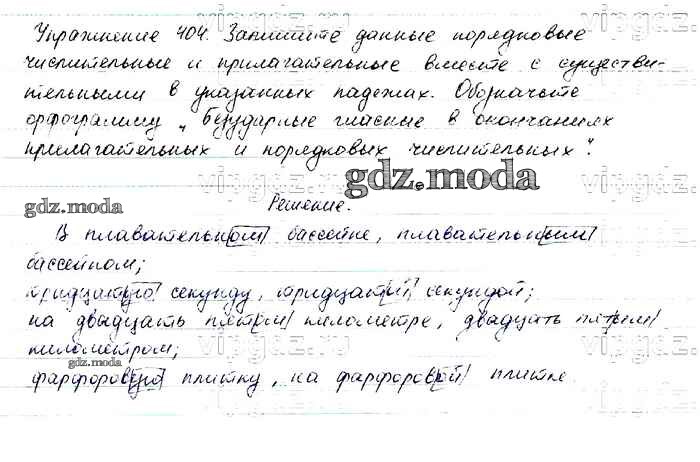 Упражнение 404. Запишите данные порядковые
числительные и прилагательные вместе с существи-
тельными в указанных падежах. Обозначьте
орфограмму „Безударные гласные в окончаниях
прилагательных и порядковых числительных".
gdz.moda
Решение.
gdz.moda
В плавательном бассейне, плавательным
бассейном;
тридцатую секунду, тридцатой секундой;
на двадцать пятом километре, двадцать пятым
километром;
gdz.moda
фарфоровую плитку, на фарфоровой плитке